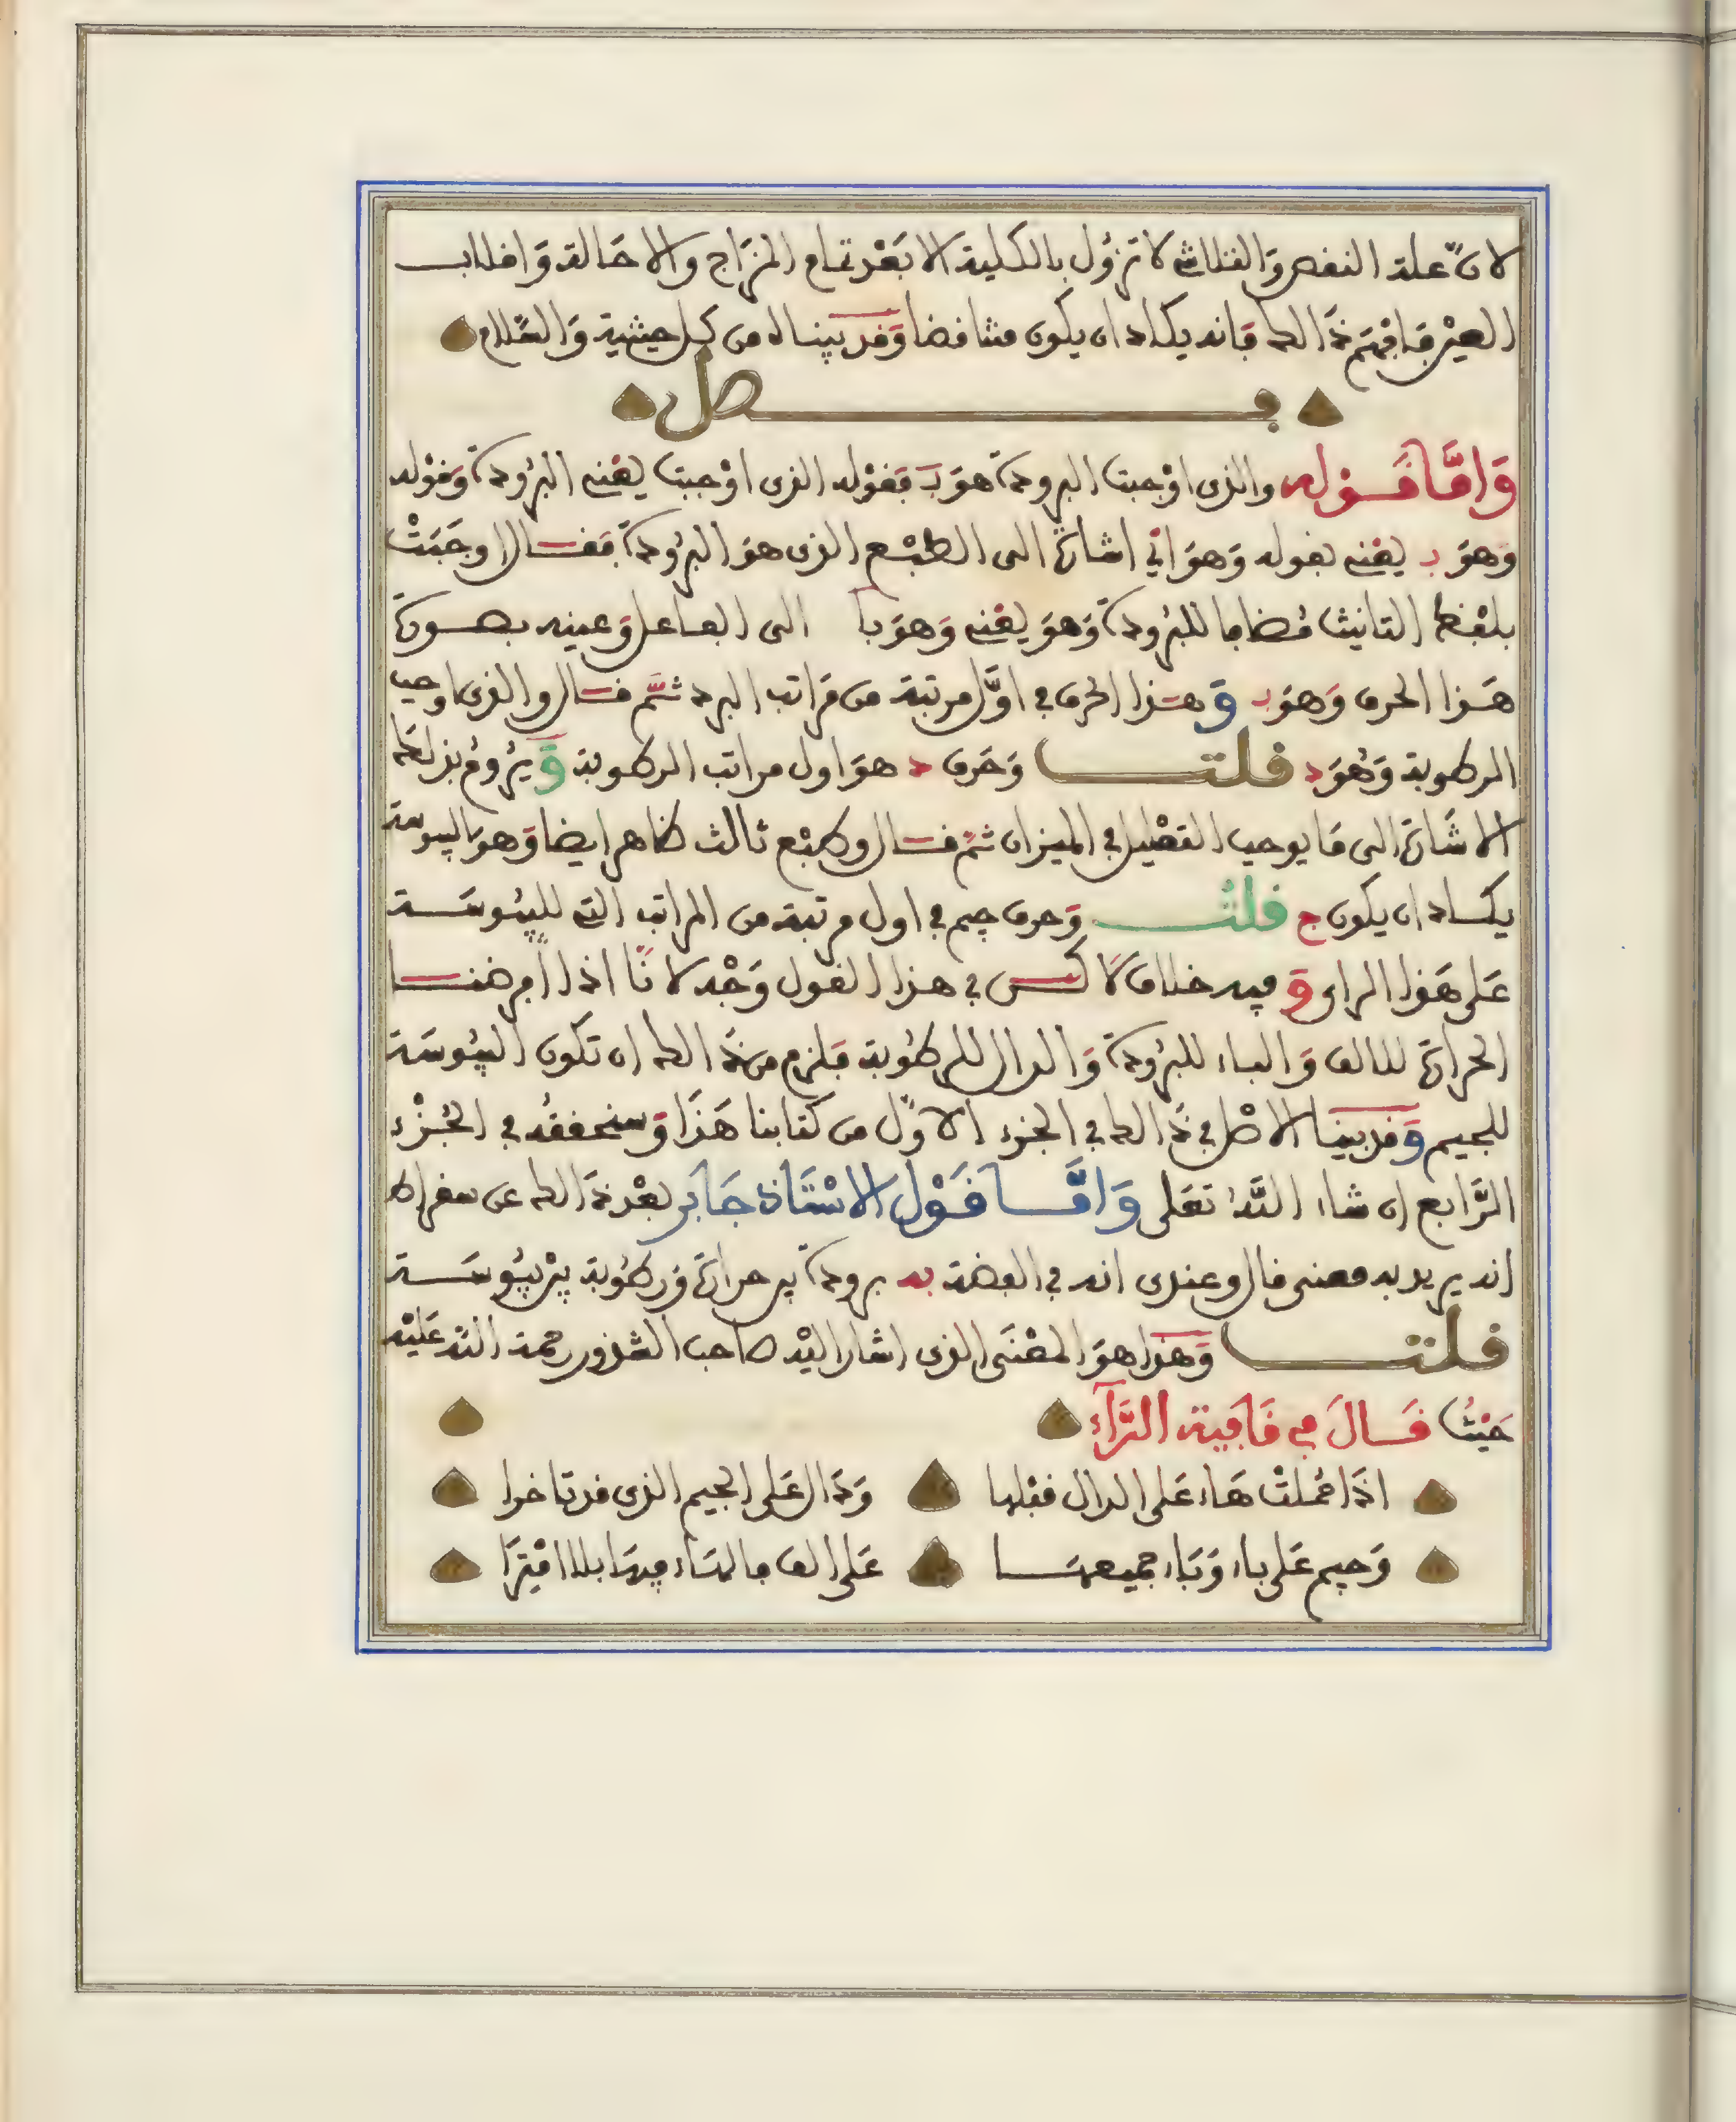 لانّ علة النقص والثلاثى لا تزول بالكلية الا بَعْد تمام المزاج والاحَالة وَانقلاب
العين فافهَم ذَالك فانه يكاد ان يكون متناقضا وَقد بيناه من كل حيثية وَالسّلام
فصل
وَامَّا قوله والذى اوْجبت البرودة هوَ بَ فقوْله الذى اوْجبت يعْنى البرُودة وَقوْله
وَهوَ ب يعْنى بقوله وَهوَ اى اشارة الى الطبْع الذى هوَ البرُودة فقال اوجَبَتْ
بلفظ التانيث مُضافا للبرُودة وَهوَ يعْنى وَهوَ بَا الى الفاعل وَعينه بصورة
هَذا الحرف وَهوَ ب وَهذا الحرف فى اوَّل مرتبة من مَراتب البرد ثمَّ قال والذى اوجب
الرطوبة وَهُوَ د قلت وَحَرف د هوَ اول مراتب الرطوبة وَيرُومُ بذلك
الاشَارة الى مَا يوجب التفصْيل فى الميزان ثمّ قال وطبْع ثالث ظاهر ايضا وَهو اليبوسة
يكاد ان يكون ج قلتُ وَحرف جيم فى اول مرتبة من المراتب التى لليبُوسَة
عَلى هَذا الراى وَفيه خلاف لاكن فى هذا القول وَجْه لانّا اذا افرضنا
الحرارة للالف وَالباء للبرُودة وَالدال للرطُوبة فَلزم من ذَالك ان تكون اليبُوسَة
للجيم وَقد بينا الاصْل فى ذَالك فى الجزء الاوّل من كتابنا هَذَا وَسنحققُه فى الجُزْء
الرَّابع ان شاء اللَّهُ تعَلى وَامَّا قَوْل الاسْتَاذ جَابر بعْد ذَالك عن سقراط
انه يريد به معنى قال وعندى انه فى الفضة به برودة ير حرارة وَرطُوبة يرْ يبُوسَة
قلت وَهذا هوَ المعْنَى الذى اشار اليْه صاحب الشذور رحمة اللّه عَليْه
حَيْثُ قَالَ فِى قَافِية الرَّآءِ
اذَا حُملتْ هَاء عَلى الدال قبْلها وَدَال عَلى الجيم الذى قد تاخرا
وَجيم عَلى باء وَبَاء جميعهَا عَلى الف فالمَاء فيهَا بلا افْتِرَا